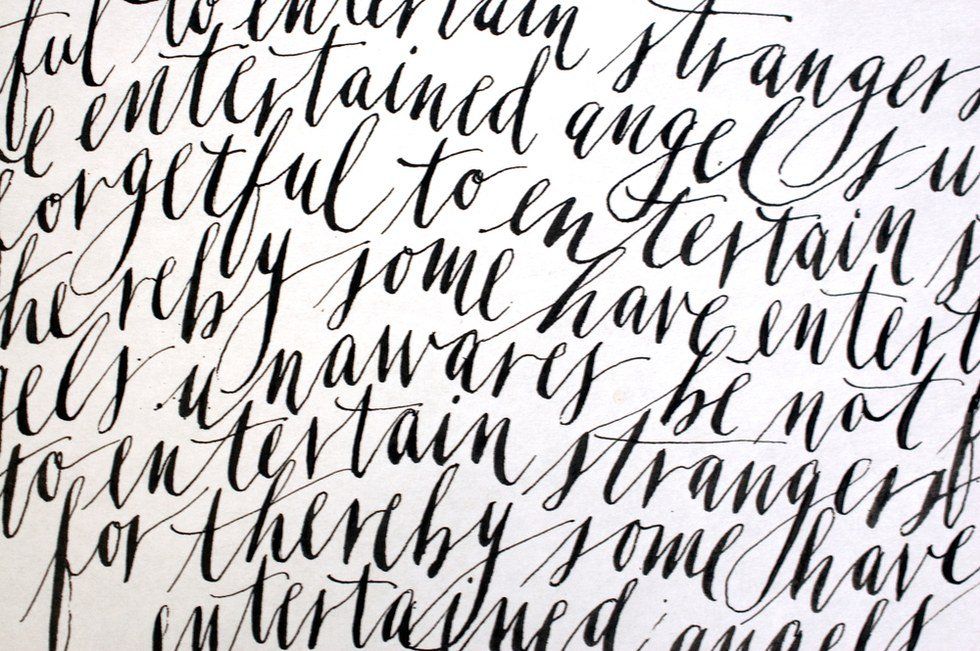 ful to entertain strangers
e entertained angels u
forgetful to entertain s
thereby some have entert
gels unawares be not f
to entertain strangers
for thereby some have
entertained angels